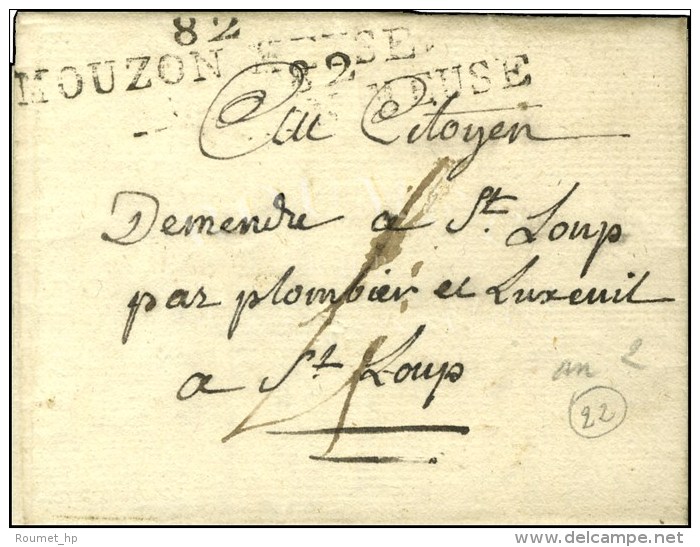 82
MOUZON MEUSE
82
MEUSE
Au Citoyen
Demendre a St. Loup
par plombier et Luxeuil
a St Loup
an 2
22
Roumet_hp
www.delcampe.net